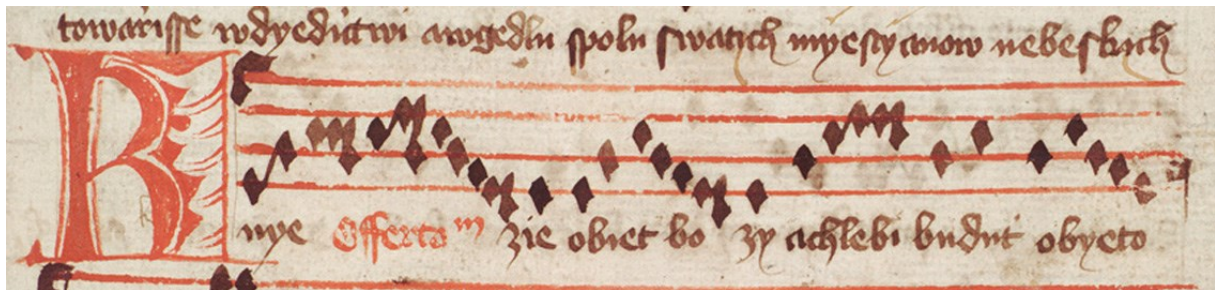 towarisse wdyedictwi awgedlu spolu swatych myesstyanow nebeskich
Knye Offerto m zie obiet bo zy achlebi budut obyeto